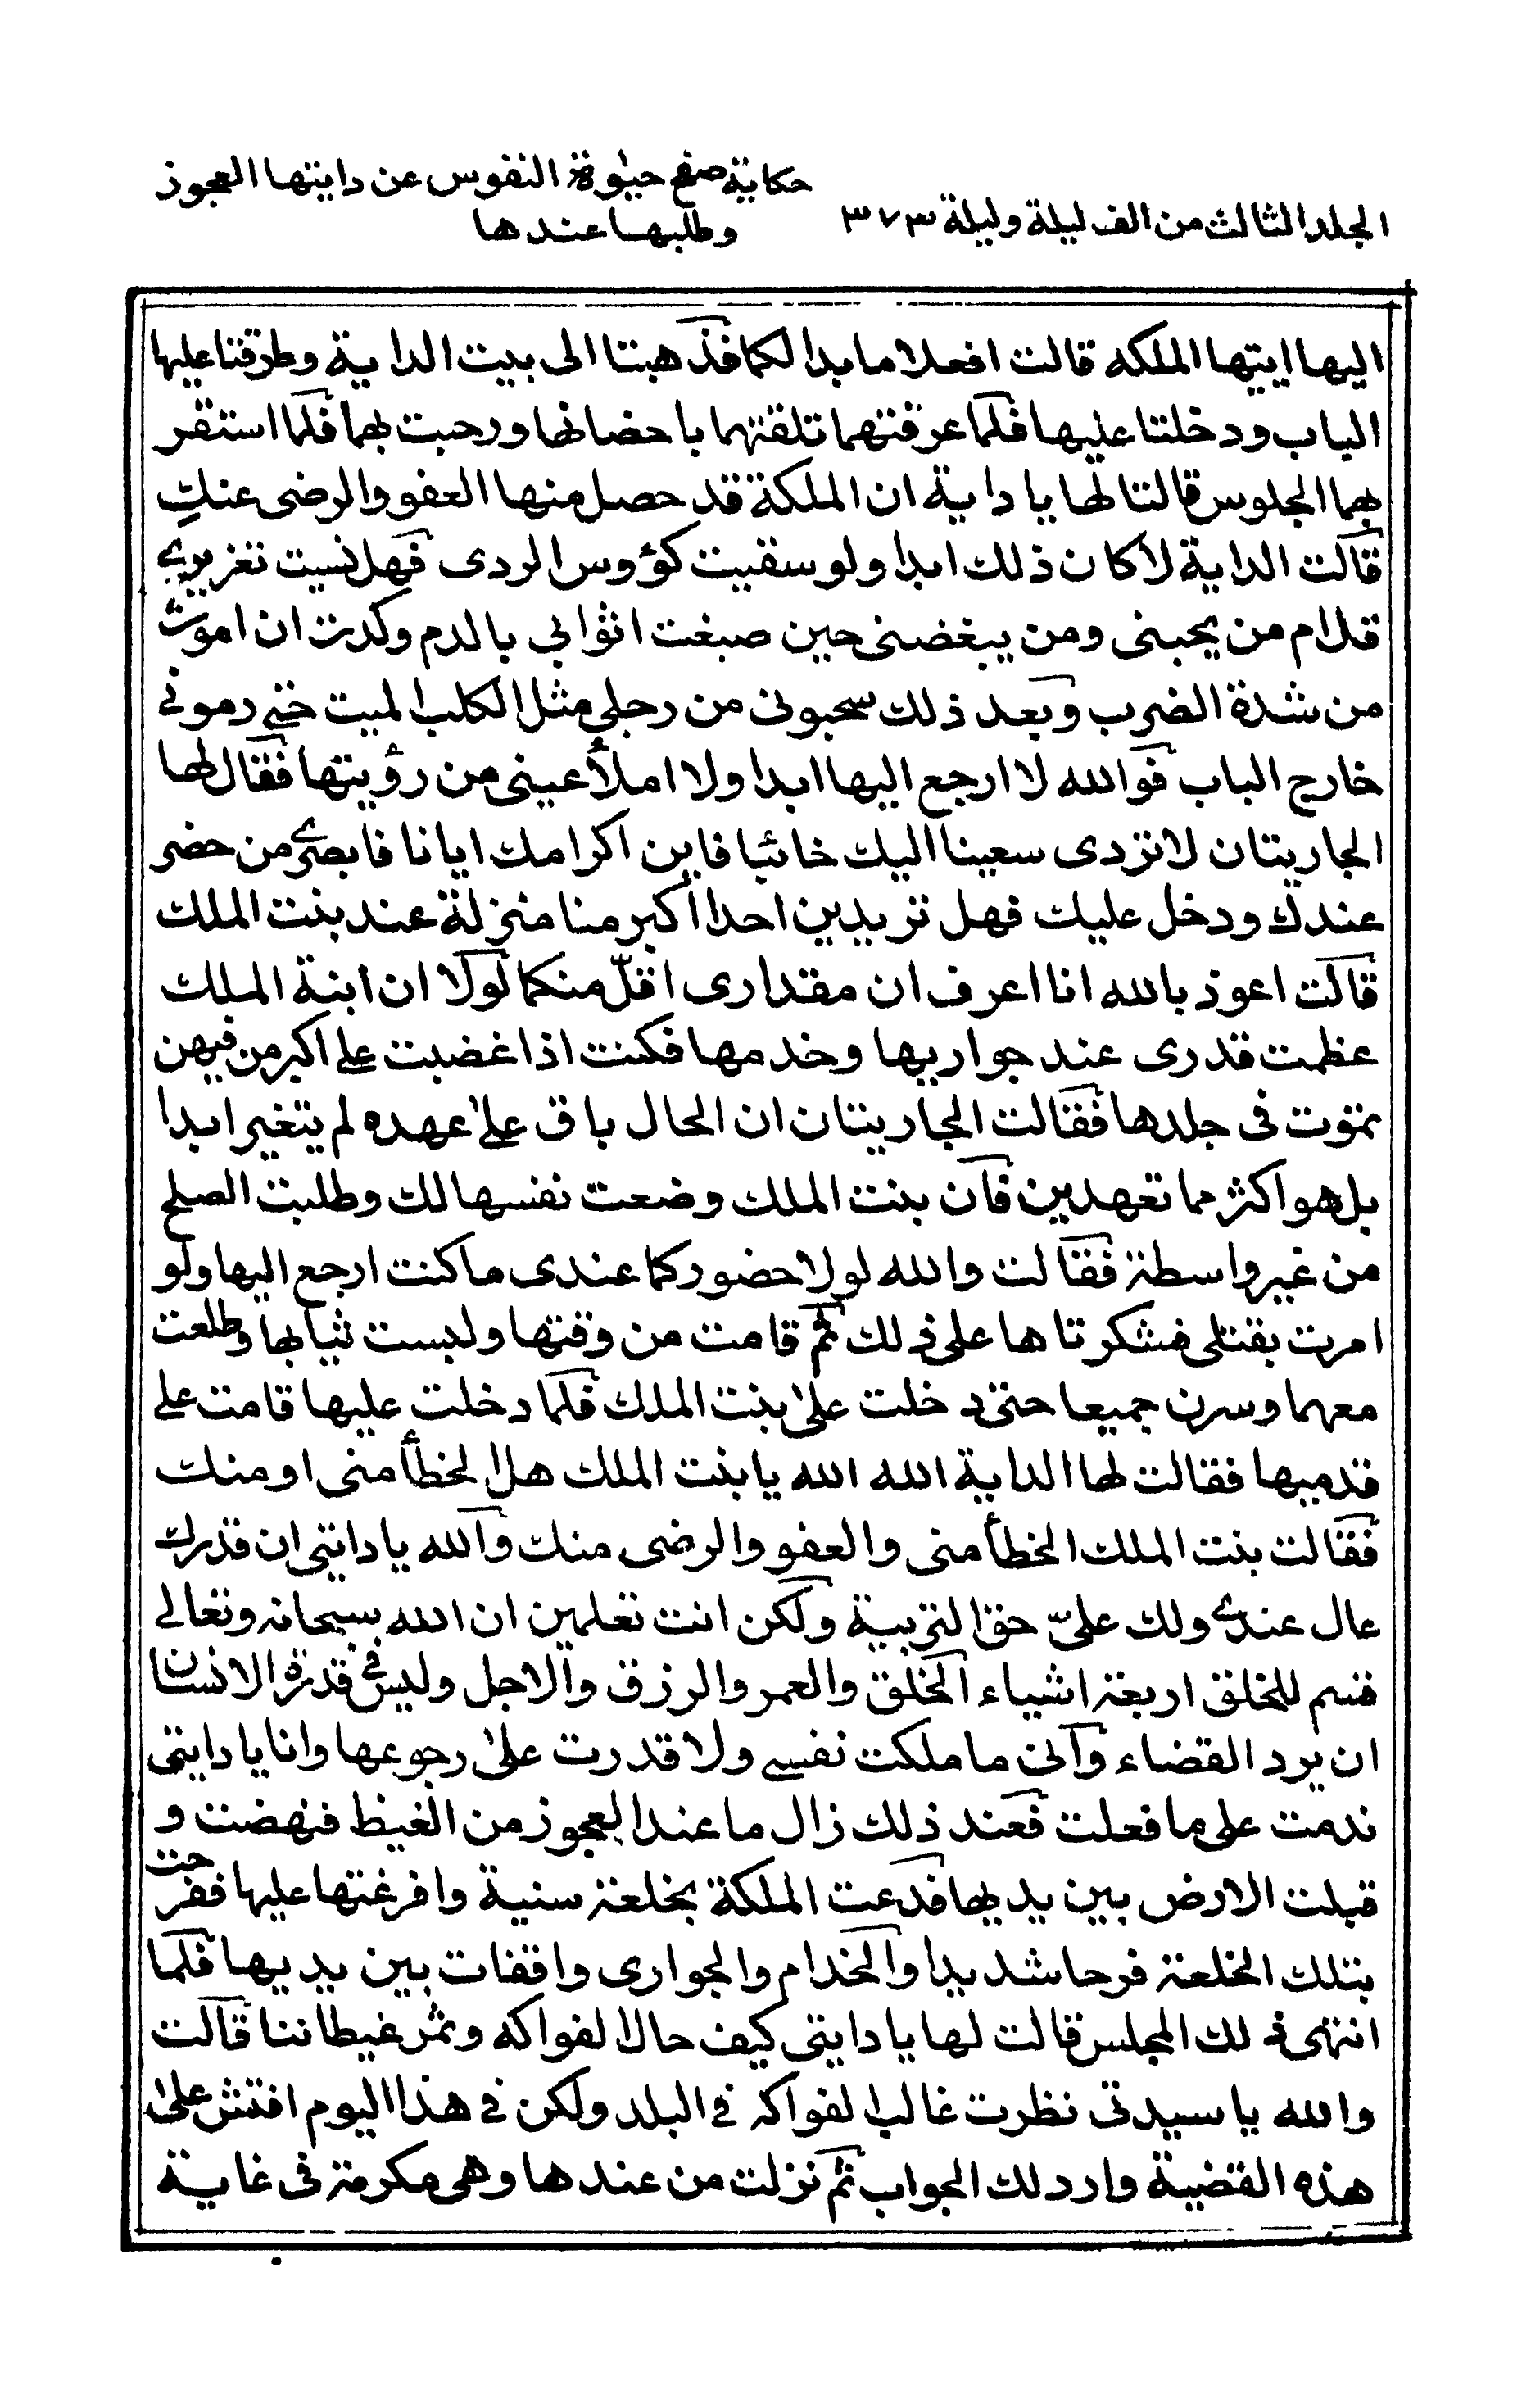 حكاية صفح حيٰوة النفوس عن دايتها العجوز
الجلد الثالث من الف ليلة وليلة ٣٧٣
وطلبها عندها
اليها ايتها الملكه قالت افعلا ما بدا لكما فذهبتا الى بيت الداية وطرقتا عليها
الباب ودخلتا عليها فلما عرفتهما تلقتهما باحضانها ورحبت بهما فلما استقر
بهما الجلوس قالتا لها يا داية ان الملكة قد حصل منها العفو والرضى عنكِ
قالت الداية لا كان ذلك ابدا ولو سقيت كؤوس الردى فهل نسيت تعزيري
قدام من يحبنى ومن يبغضنى حين صبغت اثوابي بالدم وكدت ان اموت
من شدة الضرب وبعد ذلك سحبونى من رجلي مثل الكلب الميت حتى رمونى
خارج الباب فوالله لا ارجع اليها ابدا ولا املأ عينى من رؤيتها فقال لها
الجاريتان لا تردى سعينا اليك خائبا فاين اكرامك ايانا فابصرى من حضر
عندك ودخل عليك فهل تريدين احدا أكبر منا منزلة عند بنت الملك
قالت اعوذ بالله انا اعرف ان مقدارى اقلّ منكما لولا ان ابنة الملك
عظمت قدرى عند جواريها وخدمها فكنت اذا غضبت على اكبر من فيهن
تموت فى جلدها فقالت الجاريتان ان الحال باق علىٰ عهده لم يتغير ابدا
بل هو اكثر مما تعهدين فان بنت الملك وضعت نفسها لك وطلبت الصلح
من غير واسطة فقالت والله لولا حضوركما عندى ما كنت ارجع اليها ولو
امرت بقتلى فشكرتاها على ذلك ثم قامت من وقتها ولبست ثيابها وطلعت
معهما وسرن جميعا حتى دخلت علىٰ بنت الملك فلما دخلت عليها قامت على
قدميها فقالت لها الداية الله الله يا بنت الملك هل الخطأ منى او منك
فقالت بنت الملك الخطأ منى والعفو والرضى منك والله يا دايتى ان قدرك
عال عندى ولك علىّ حق التربية ولكن انت تعلمين ان الله سبحانه وتعالى
قسم للخلق اربعة اشياء الخلق والعمر والرزق والاجل وليس فى قدرة الانسان
ان يرد القضاء وانى ما ملكت نفسى ولا قدرت علىٰ رجوعها وانا يا دايتى
ندمت على ما فعلت فعند ذلك زال ما عند العجوز من الغيظ فنهضت و
قبلت الارض بين يديها فدعت الملكة بخلعة سنية وافرغتها عليها ففرحت
بتلك الخلعة فرحا شديدا والخدام والجوارى واقفات بين يديها فلما
انتهى ذلك المجلس قالت لها يا دايتى كيف حال الفواكه وثمر غيطاننا قالت
والله يا سيدتى نظرت غالب الفواكه فى البلد ولكن فى هذا اليوم افتش علىٰ
هذه القضية وارد لك الجواب ثم نزلت من عندها وهى مكرمة فى غاية